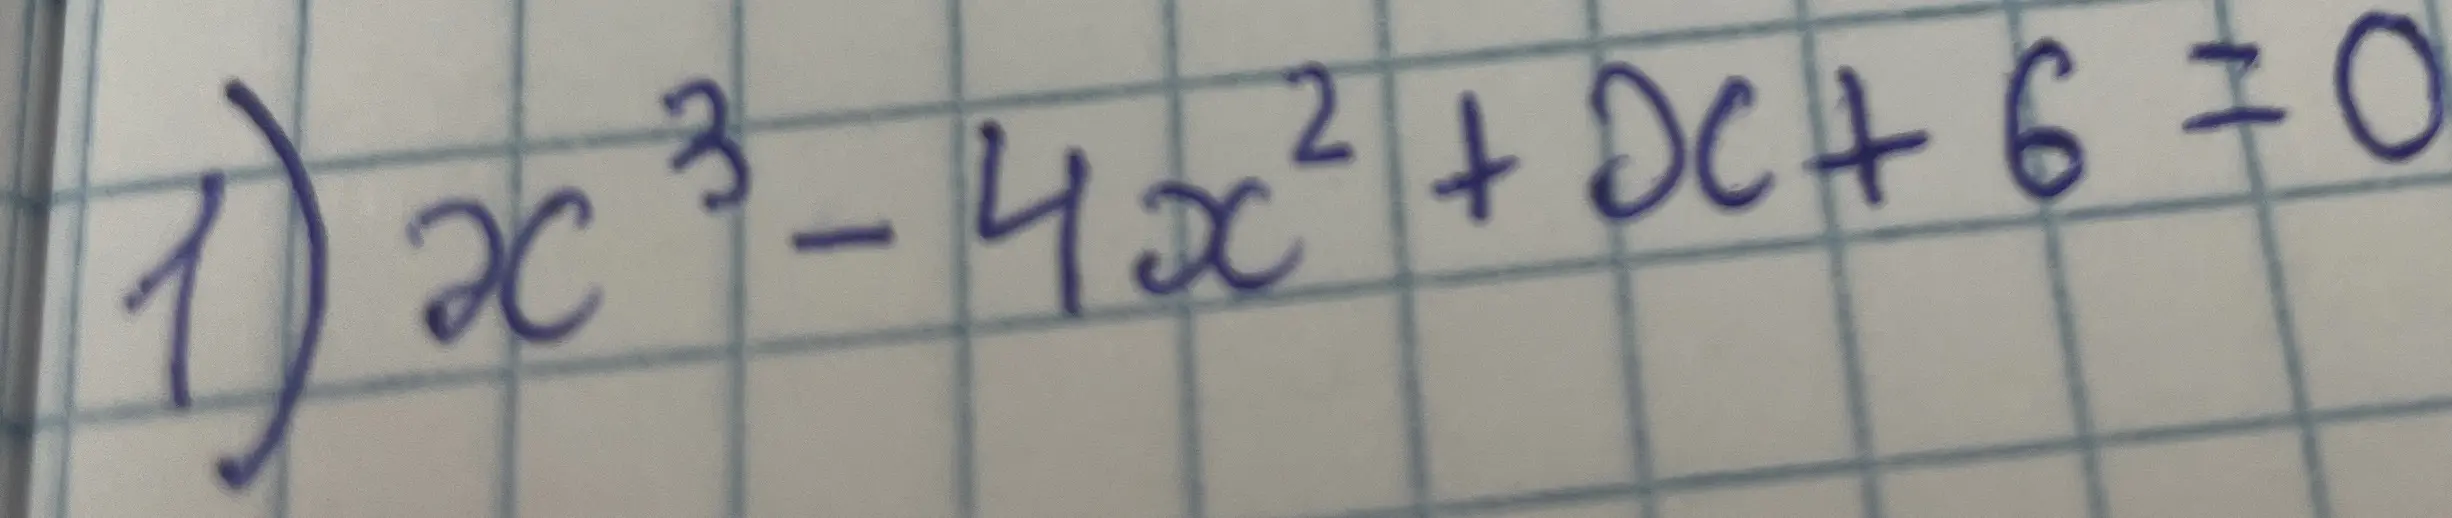 1) x³ - 4x² + x + 6 = 0